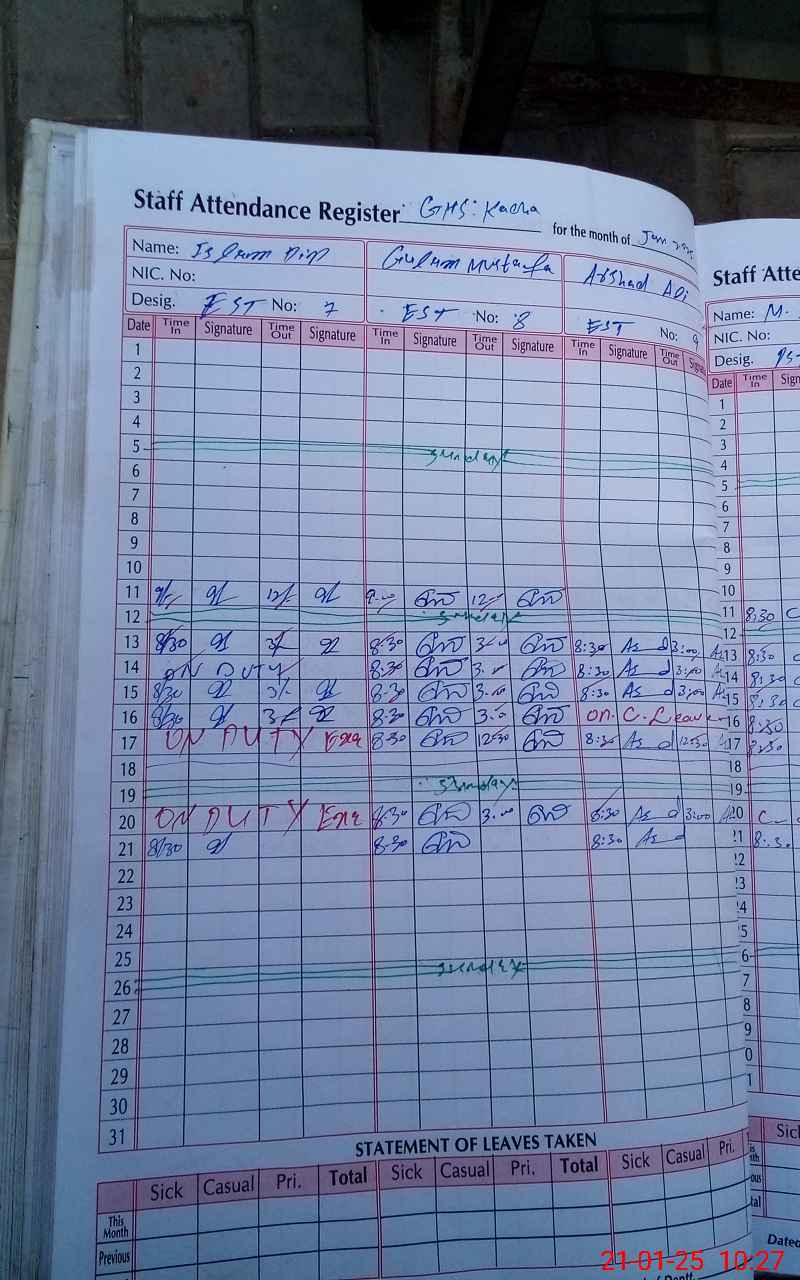 Staff Attendance Register GHS: Kacha for the month of Jan 2025
Name: Islam Din Gulam Mustafa Arshad Ali
NIC. No:
Desig. EST No: 7 EST No: 8 EST No: 9
Date Time In Signature Time Out Signature Time In Signature Time Out Signature Time In Signature Time Out
1
2
3
4
5 Sunday
6
7
8
9
10
11 9/- 12/- 9.00 12/-
12 Sunday
13 8/30 3/- 8:30 3.00 8:30 3:00
14 ON DUTY 8:30 3.00 8:30 3:00
15 8/30 3/- 8:30 3.00 8:30 3:00
16 8/30 3/- 8:30 3.00 on. C. Leave
17 ON DUTY 8:30 12:30 8:30 12:30
18
19 Sunday
20 ON DUTY 8:30 3.00 8:30 3:00
21 8/30 8:30 8:30
22
23
24
25
26 Sunday
27
28
29
30
31
STATEMENT OF LEAVES TAKEN
Sick Casual Pri. Total Sick Casual Pri. Total Sick Casual Pri.
This Month
Previous
Staff Atte
Name: M.
NIC. No:
Desig.
Date Time In Sign
1
2
3
4
5
6
7
8
9
10
11 8:30
12
13 8:30
14 8:30
15 8:30
16 8:30
17 8:30
18
19
20 C
21 8:30
Sick
Dated
21-01-25 10:27